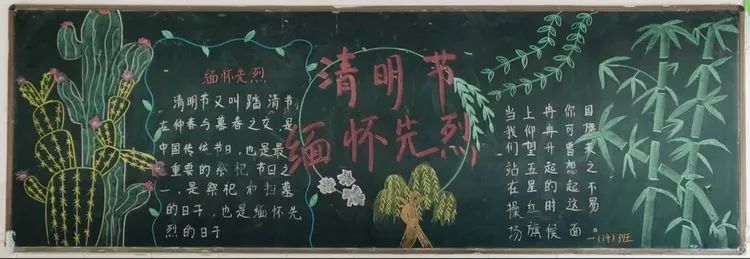 缅怀先烈
清明节又叫踏清节,
在仲春与暮春之交,是
中国传统节日,也是最
重要的祭祀节日之
一,是祭祀和扫墓
的日子,也是缅怀先
烈的日子
清明节
缅怀先烈
当我们站在操场
上仰望五星红旗
冉冉升起的时候
你可曾想起这面
国旗来之不易。
一(14)班